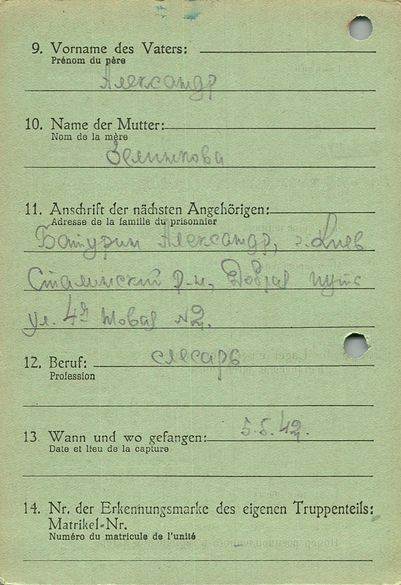 9. Vorname des Vaters:
Prénom du père
Александр
10. Name der Mutter:
Nom de la mère
Зелинкова
11. Anschrift der nächsten Angehörigen:
Adresse de la famille du prisonnier
Батурин Александр, г. Киев
Сталинский р-н, Добрая путь
ул. 4я Новая №2.
12. Beruf:
слесарь
Profession
13. Wann und wo gefangen:
5.5.42.
Date et lieu de la capture
14. Nr. der Erkennungsmarke des eigenen Truppenteils:
Matrikel-Nr.
Numéro du matricule de l'unité